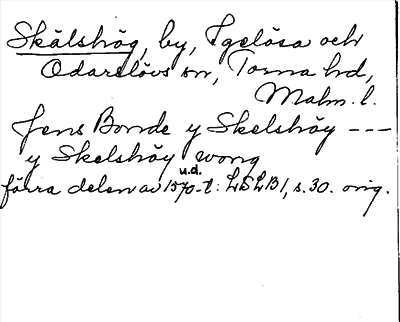 Skälshög, by, Igelösa och
Odarslövs sn, Torna hrd,
Malm. l.
Jens Bonde y Skelshöy ---
y Skelshöy wong
u.d.
förra delen av 1570-t: LSLB1, s. 30. orig.